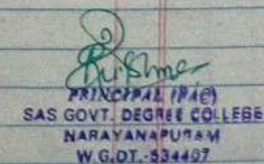 PRINCIPAL (FAC)
SAS GOVT. DEGREE COLLEGE
NARAYANAPURAM
W.G.DT.-534407